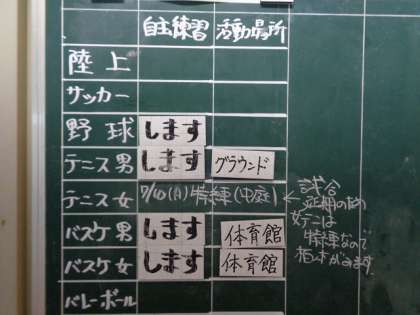 自主練習 活動場所
陸上
サッカー
野球 します
テニス男 します グラウンド
テニス女 7/10(月)特練(中庭) ← 試合
延期のため
女テニは
特練なので
があります
バスケ男 します 体育館
バスケ女 します 体育館
バレーボール